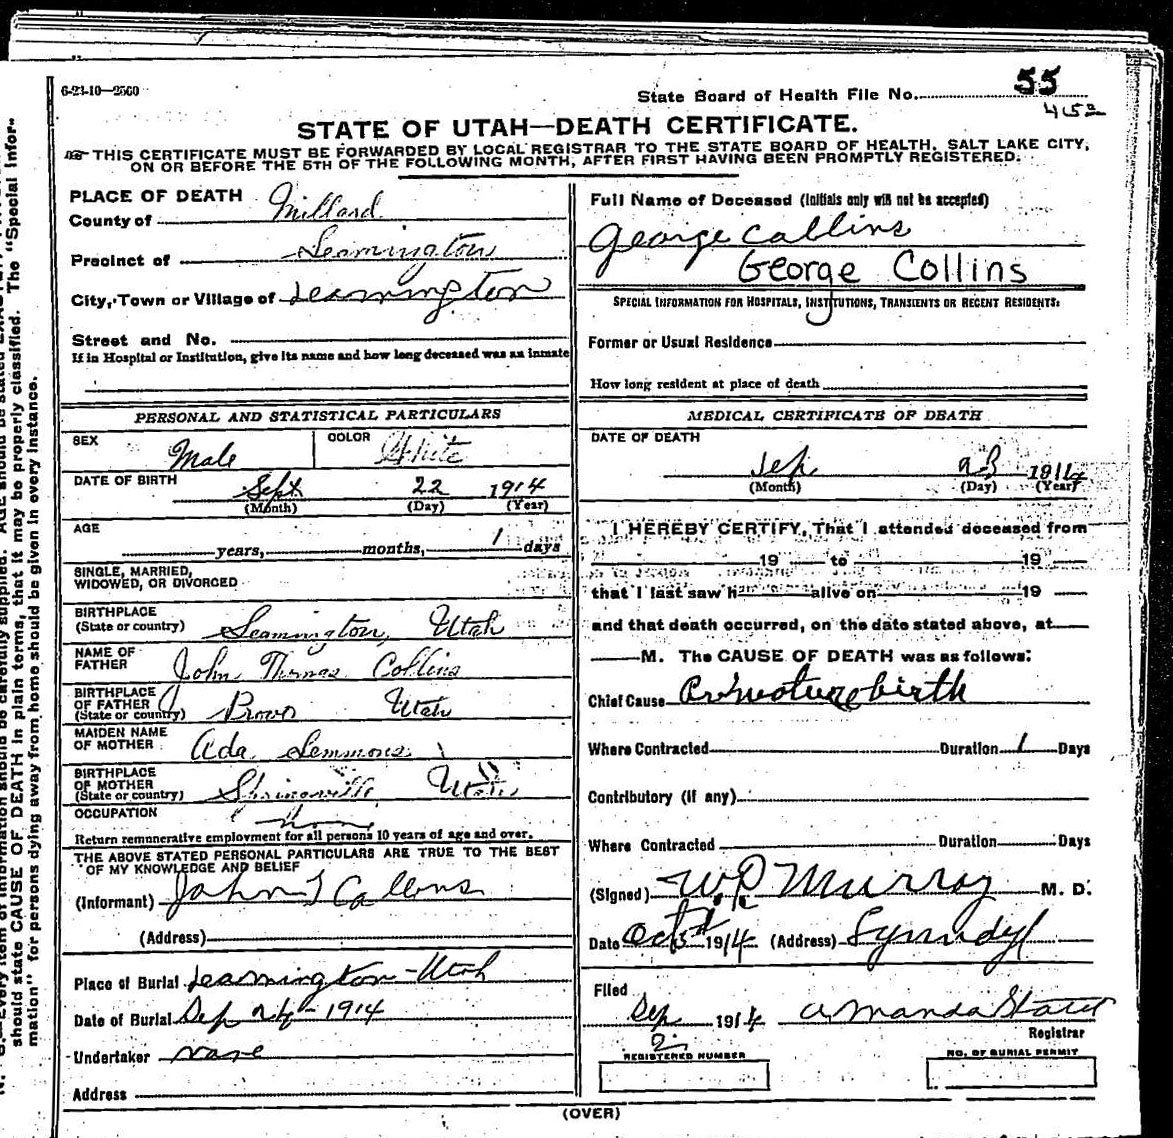 6-23-10—2500
State Board of Health File No. 55
452
STATE OF UTAH—DEATH CERTIFICATE.
THIS CERTIFICATE MUST BE FORWARDED BY LOCAL REGISTRAR TO THE STATE BOARD OF HEALTH, SALT LAKE CITY,
ON OR BEFORE THE 5TH OF THE FOLLOWING MONTH, AFTER FIRST HAVING BEEN PROMPTLY REGISTERED.
PLACE OF DEATH
County of Millard
Precinct of Leamington
City, Town or Village of Leamington
Street and No.
If in Hospital or Institution, give its name and how long deceased was an inmate
PERSONAL AND STATISTICAL PARTICULARS
SEX Male COLOR White
DATE OF BIRTH Sept 22 1914
(Month) (Day) (Year)
AGE years, months, 1 days
SINGLE, MARRIED,
WIDOWED, OR DIVORCED
BIRTHPLACE
(State or country) Leamington, Utah
NAME OF
FATHER John Thomas Collins
BIRTHPLACE
OF FATHER
(State or country) Provo Utah
MAIDEN NAME
OF MOTHER Ada Lemmons
BIRTHPLACE
OF MOTHER
(State or country) Utah
OCCUPATION
Return remunerative employment for all persons 10 years of age and over.
THE ABOVE STATED PERSONAL PARTICULARS ARE TRUE TO THE BEST
OF MY KNOWLEDGE AND BELIEF
(Informant) John T Collons
(Address)
Place of Burial Leamington - Utah
Date of Burial Sep 24 - 1914
Undertaker
Address
Full Name of Deceased (Initials only will not be accepted)
George Collins
George Collins
SPECIAL INFORMATION FOR HOSPITALS, INSTITUTIONS, TRANSIENTS OR RECENT RESIDENTS:
Former or Usual Residence
How long resident at place of death
MEDICAL CERTIFICATE OF DEATH
DATE OF DEATH
Sep 23 1914
(Month) (Day) (Year)
I HEREBY CERTIFY, That I attended deceased from
19 to 19
that I last saw h alive on 19
and that death occurred, on the date stated above, at
M. The CAUSE OF DEATH was as follows:
Chief Cause birth
Where Contracted Duration 1 Days
Contributory (if any)
Where Contracted Duration Days
(Signed) W.P. Murray M. D.
Date Oct 1914 (Address) Lynndyl
Filed
Sep 1914 Amanda
Registrar
2
REGISTERED NUMBER NO. OF BURIAL PERMIT
(OVER)
should state CAUSE OF DEATH in plain terms, that it may be properly classified. The "Special Infor-
mation" for persons dying away from home should be given in every instance.